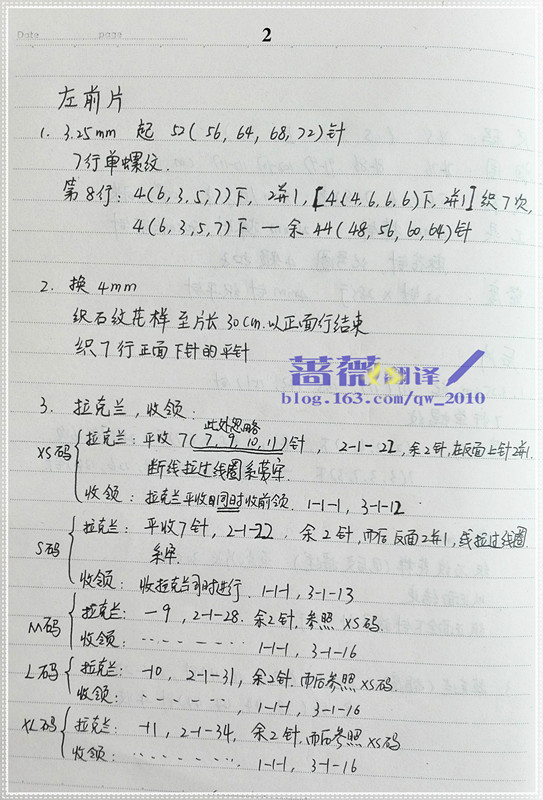 Date page
2
左前片
1. 3.25mm 起 52(56,64,68,72)针
7行单螺纹.
第8行: 4(6,3,5,7)下, 2并1, [4(4,6,6,6)下, 2并1]织7次,
4(6,3,5,7)下 — 余44(48,56,60,64)针
2. 换4mm
织石纹花样至片长30cm.以正面行结束
织7行正面下针的平针
蔷薇 翻译
blog.163.com/qw_2010
3. 拉克兰, 收领:
此处忽略
XS码 拉克兰: 平收7(7,9,10,11)针, 2-1-22, 余2针,在反面上针2并1.
断线拉过线圈系牢.
收领: 拉克兰平收同时收前领. 1-1-1, 3-1-12
S码 拉克兰: 平收7针, 2-1-22. 余2针,而后反面2并1,线拉过线圈
系牢.
收领: 收拉克兰同时进行. 1-1-1, 3-1-13
M码 拉克兰: -9, 2-1-28. 余2针, 参照XS码.
收领: 1-1-1, 3-1-16
L码 拉克兰: -10, 2-1-31, 余2针.而后参照XS码.
收领: 1-1-1, 3-1-16
XL码 拉克兰: -11, 2-1-34, 余2针,而后参照XS码
收领: 1-1-1, 3-1-16